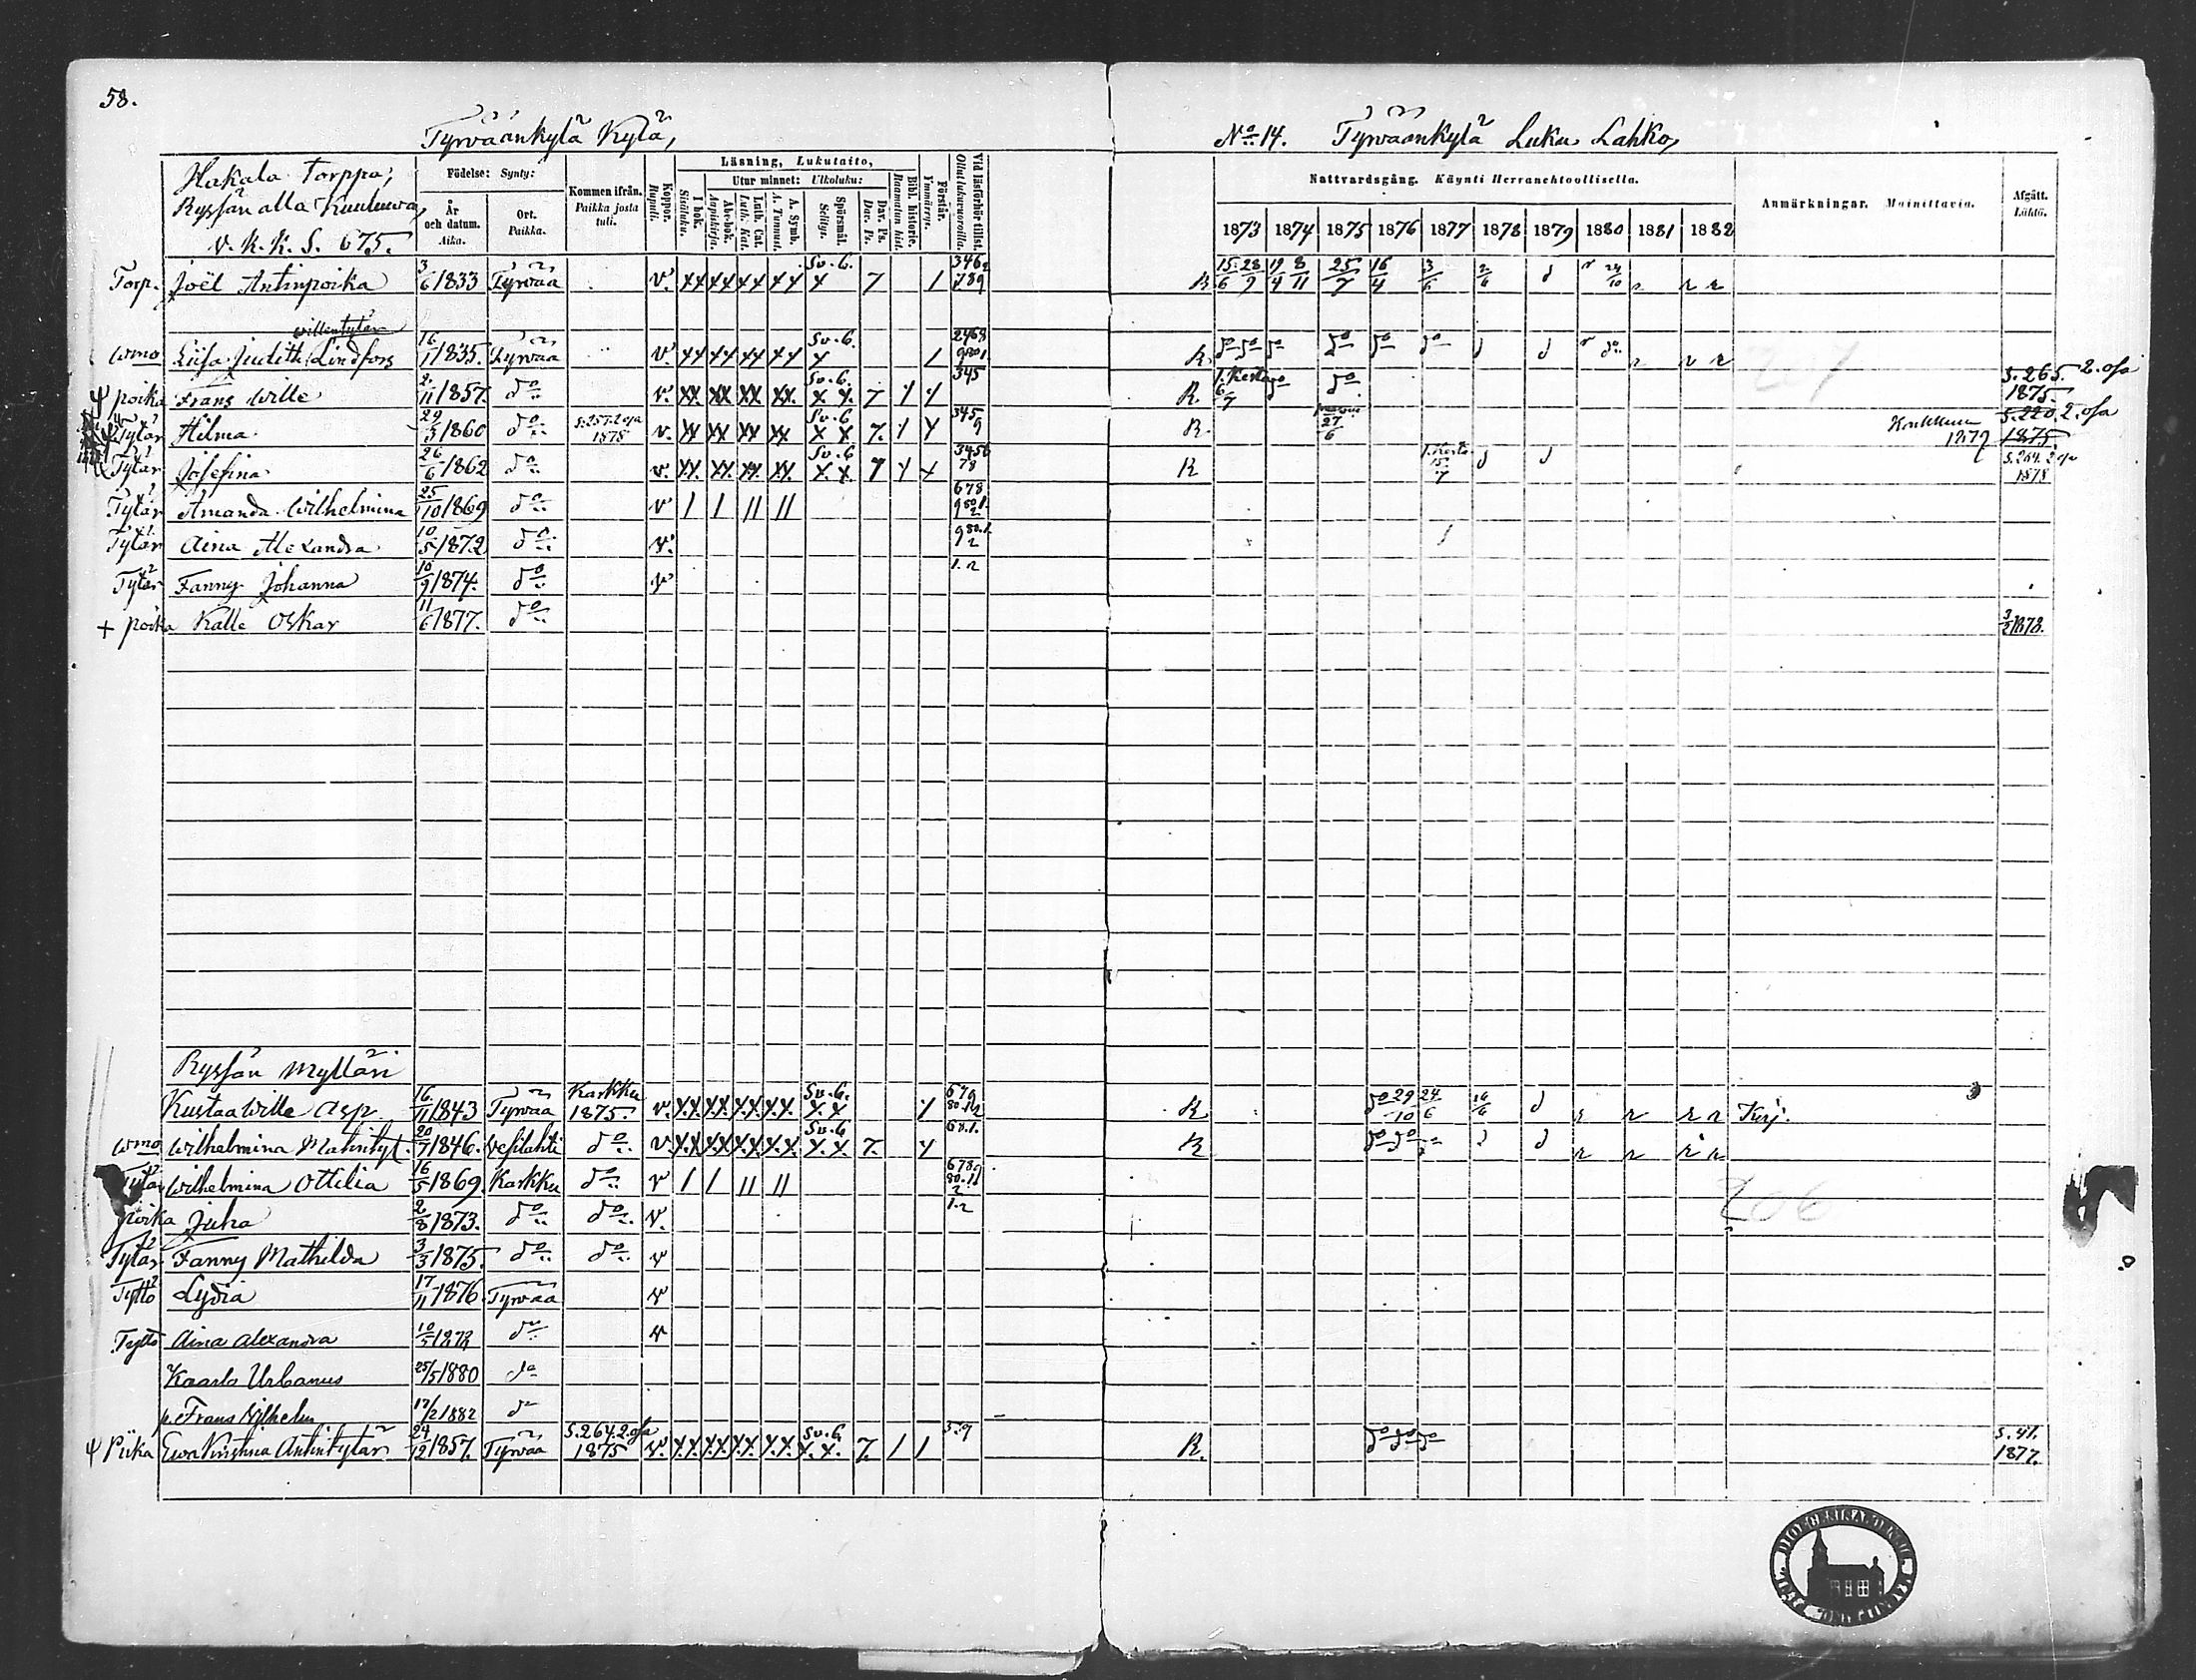 58.
Tyrväänkylä Kylä,
No 14. Tyrväänkylä Luku Lahko,
Hakala Torppa;
Ryssän alla Kuuluwa,
v. k. K. S. 675.
Födelse: Synty:
År och datum. Aika.
Ort. Paikka.
Kommen ifrån. Paikka josta tuli.
Koppor. Rupuli.
Läsning, Lukutaito,
I bok. Sisäluku.
Utur minnet: Ulkoluku:
Abc-bok. Aapiskirja.
Luth. Cat. Luth. Kat.
A. Symb. A. Tunnust.
Spörsmål. Selitys.
Dav. Ps. Dav. Ps.
Bibl. historie. Raamatun hist.
Förstår. Ymmärrys.
Vid läsförhör tillst. Ollut lukuvuoroilla.
Nattvardsgång. Käynti Herranehtoollisella.
1873 1874 1875 1876 1877 1878 1879 1880 1881 1882
Anmärkningar. Mainittavia.
Afgått. Lähtö.
Torp. Joël Antinpoika 3/6 1833 Tyrvää v. xx xx xx xx Sv. 6. x 7 / R. 15/6 28/9 19/4 8/11 25/7 16/4 3/6 2/6 d r 24/10 r r r
willentytär
wmo Liisa Judith Lindfors 16/11 1835. Tyrvää v. xx xx xx xx Sv. 6. x / R. do do do do do do d d r do r r r
poika Frans Wille 2/11 1857. do v. xx xx xx xx Sv. 6. x x 7 345 R. 6/7 do do S. 265. 2. osa 1875.
Tytär Hilma 29/3 1860 do S. 257. 2 osa 1878 v. xx xx xx xx Sv. 6 x x 7. 345 9 R. 27/6 1879 S. 220. 2. osa 1875.
Tytär Josefina 26/6 1862 do v. xx xx xx xx Sv. 6 x x 7 3456 78 R 15/7 d d S. 264. 2 osa 1878
Tytär Amanda Wilhelmina 25/10 1869 do v / / // // 678
Tytär Aina Alexandra 10/5 1872 do v.
Tytär Fanny Johanna 10/9 1874. do v 1. 2
+ poika Kalle Oskar 11/6 1877. do 3/2 1878.
207
Ryssän Mylläri
Kustaa Wille Asp 16/11 1843 Tyrvää Karkku 1875. v. xx xx xx xx Sv. 6. x x R do 29/10 24/6 16/6 d r r r r Kirj.
wmo Wilhelmina Matintyt. 20/7 1846. Vesilahti do v. xx xx xx xx Sv. 6 x x 7. R do do d d r r r r
Tytär Wilhelmina Ottilia 16/5 1869. Karkku do v / / // //
206
poika Juha 2/8 1873. do do v. 1. 2
Tytär Fanny Mathilda 3/3 1875. do do v
Tyttö Lydia 17/11 1876. Tyrvää v
Tyttö Aina Alexandra 10/5 1878 do v
Kaarlo Urbanus 25/5 1880 do
p. Frans Wilhelm 17/2 1882 do
Piika Ewa Kristina Antintytär 24/12 1857. Tyrvää S. 264. 2. osa 1875 v. xx xx xx xx Sv. 6 x x 7. / / 5. 9 R. do do do S. 41. 1877.